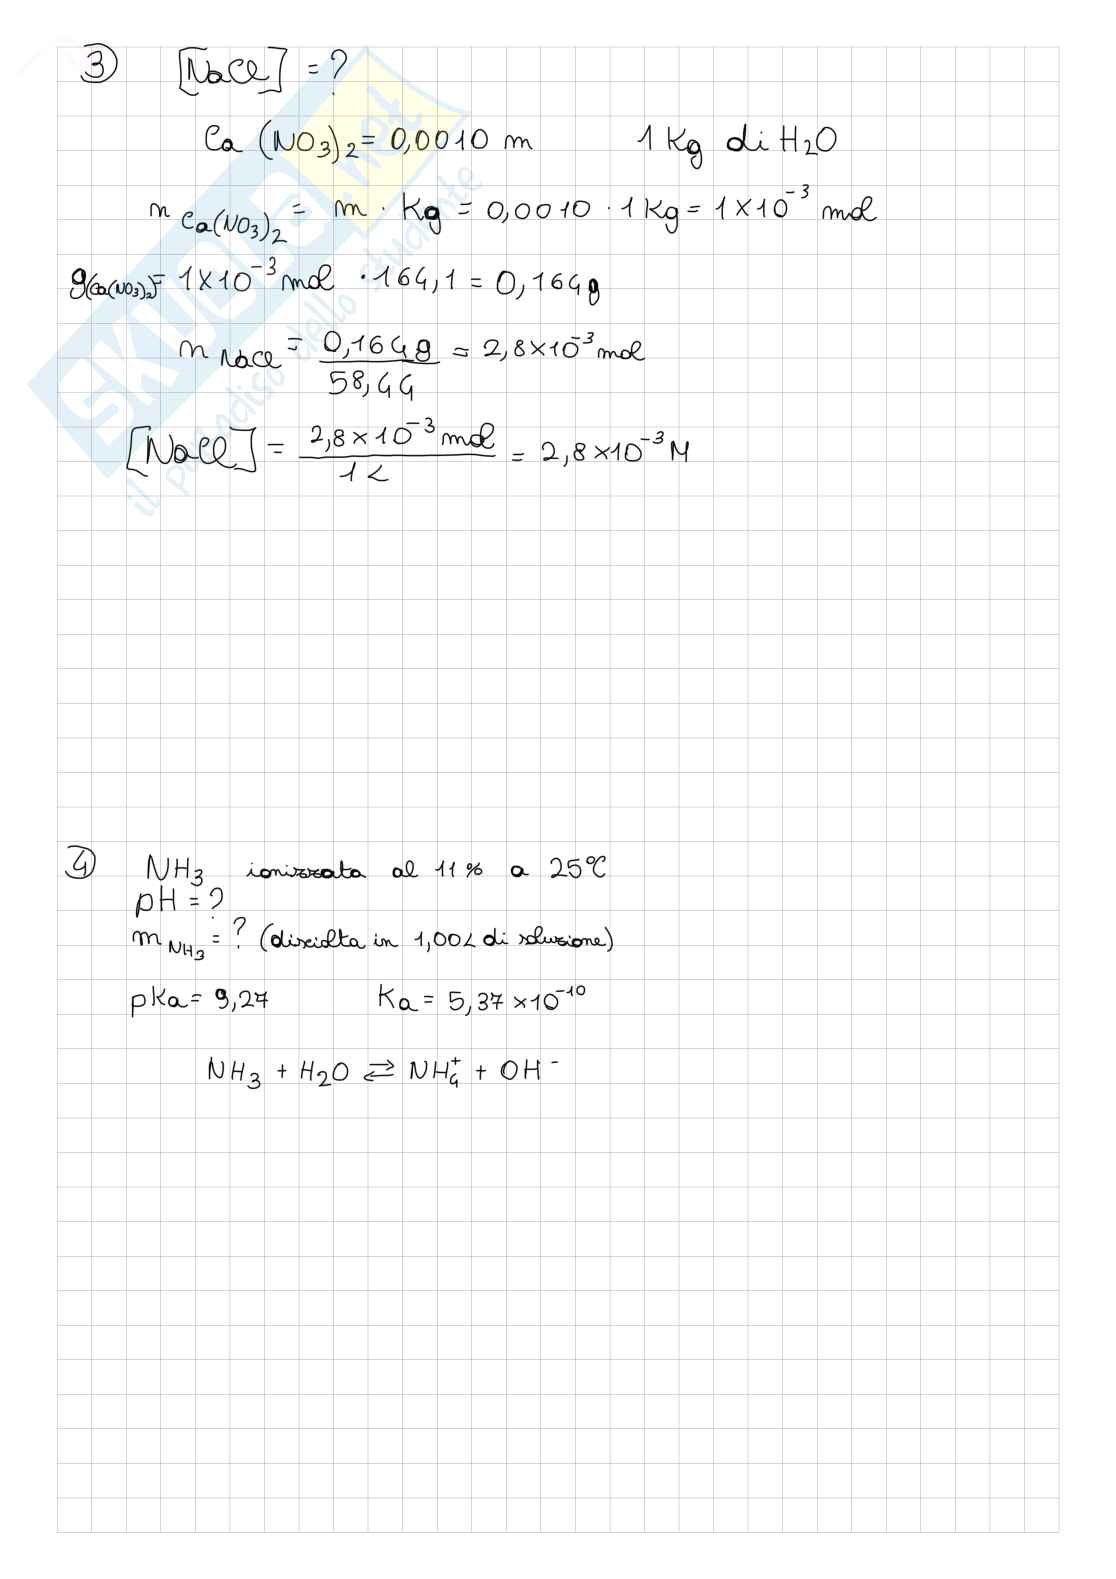 ③ [NaCl] = ?
Ca(NO3)2 = 0,0010 m 1 Kg di H2O
n Ca(NO3)2 = m · Kg = 0,0010 · 1 Kg = 1 × 10^-3 mol
g(Ca(NO3)2) = 1×10^-3 mol · 164,1 = 0,164g
n NaCl = 0,164g / 58,44 = 2,8×10^-3 mol
[NaCl] = 2,8×10^-3 mol / 1 L = 2,8×10^-3 M
④ NH3 ionizzata al 11% a 25°C
pH = ?
m NH3 = ? (disciolta in 1,00L di soluzione)
pKa = 9,27 Ka = 5,37 ×10^-10
NH3 + H2O ⇄ NH4+ + OH-
SKUOLA.net
il paradiso dello studente